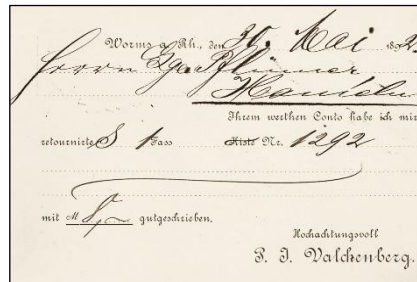 Worms a. Rh., den 30. Mai 1892.
Herrn
Hameln
Ihrem werthen Conto habe ich mir
retournirte 1 Fass Kiste Nr. 1292
mit M 8, gutgeschrieben,
Hochachtungsvoll
P. J. Valckenberg.